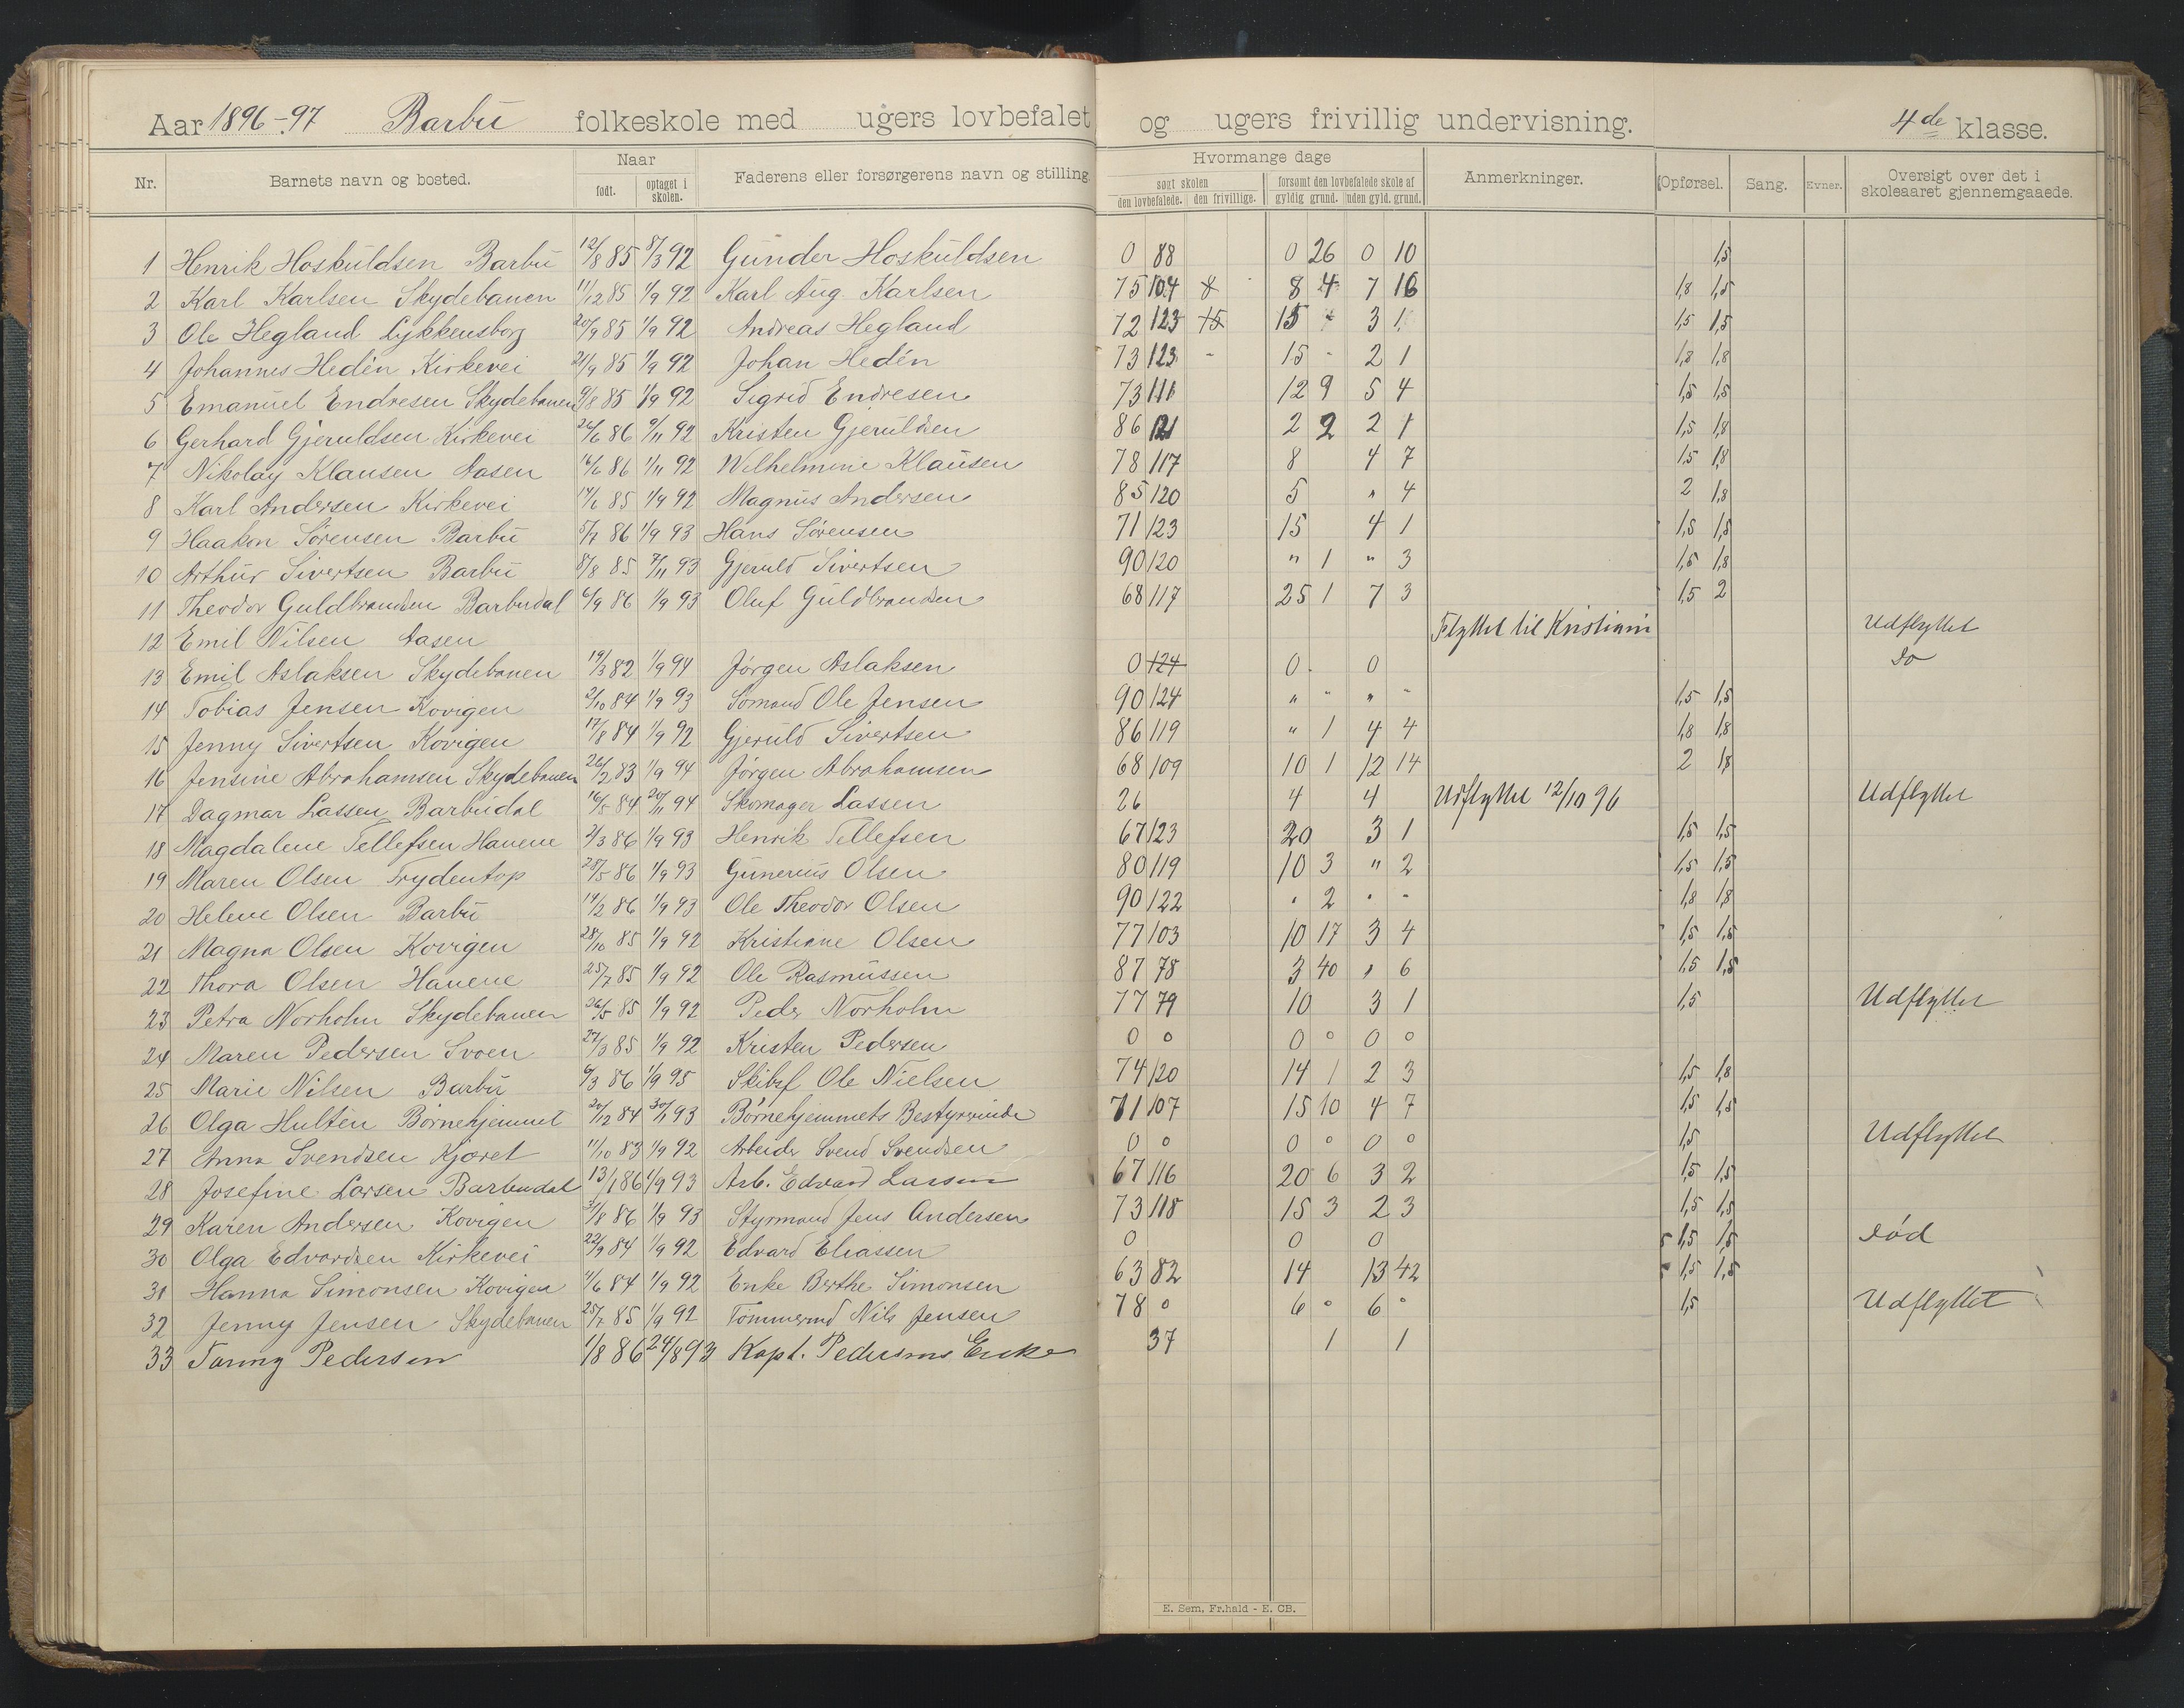 Aar 1896-97 Barbu folkeskole med ugers lovbefalet og ugers frivillig undervisning. 4de klasse.
Nr. Barnets navn og bosted. Naar født. optaget i skolen. Faderens eller forsørgerens navn og stilling. Hvormange dage søgt skolen den lovbefalede. den frivillige. forsømt den lovbefalede skole af gyldig grund. uden gyld. grund. Anmerkninger. Opførsel. Sang. Evner. Oversigt over det i skoleaaret gjennemgaaede.
1 Henrik Hoskuldsen Barbu 12/8 85 8/3 92 Gunder Hoskuldsen 0 88 0 26 0 10 1,5
2 Karl Karlsen Skydebanen 11/12 85 1/9 92 Karl Aug. Karlsen 75 104 8 8 4 7 16 1,8 1,5
3 Ole Hegland Lykkensborg 20/9 85 1/9 92 Andreas Hegland 72 123 15 15 3 1 1,5 1,5
4 Johannes Hedén Kirkevei 21/9 85 1/9 92 Johan Hedén 73 123 - 15 - 2 1 1,8 1,8
5 Emanuel Endresen Skydebanen 9/8 85 1/9 92 Sigrid Endresen 73 116 12 9 5 4 1,5 1,5
6 Gerhard Gjeruldsen Kirkevei 26/6 86 9/11 92 Kristen Gjeruldsen 86 121 2 2 2 1 1,5 1,8
7 Nikolay Klausen Aasen 16/6 86 1/11 92 Wilhelmine Klausen 78 117 8 4 7 1,5 1,8
8 Karl Andersen Kirkevei 14/6 85 1/9 92 Magnus Andersen 85 120 5 " 4 2 1,8
9 Haakon Sørensen Barbu 5/7 86 1/9 93 Hans Sørensen 71 123 15 4 1 1,5 1,8
10 Arthur Sivertsen Barbu 8/8 85 7/11 93 Gjeruld Sivertsen 90 120 " 1 " 3 1,5 1,8
11 Theodor Guldbrandsen Barbudal 6/9 86 1/9 93 Oluf Guldbrandsen 68 117 25 1 7 3 1,5 2
12 Emil Nilsen Aasen Flyttet til Kristiania Udflyttet
13 Emil Aslaksen Skydebanen 19/3 82 1/9 94 Jørgen Aslaksen 0 124 0 0 do
14 Tobias Jensen Kovigen 2/10 84 1/9 93 Sømand Ole Jensen 90 124 " " " " 1,5 1,5
15 Jenny Sivertsen Kovigen 17/8 84 1/9 92 Gjeruld Sivertsen 86 119 " 1 4 4 1,8 1,8
16 Jensine Abrahamsen Skydebanen 26/2 83 1/9 94 Jørgen Abrahamsen 68 109 10 1 12 14 2 1,8
17 Dagmar Lassen Barbudal 16/5 84 20/11 94 Skomager Lassen 26 4 4 Udflyttet 12/10 96 Udflyttet
18 Magdalene Tellefsen Havene 2/3 86 1/9 93 Henrik Tellefsen 67 123 20 3 1 1,5 1,5
19 Maren Olsen Frydentop 28/5 86 1/9 93 Gunerius Olsen 80 119 10 3 " 2 1,5 1,5
20 Helene Olsen Barbu 14/2 86 1/9 93 Ole Theodor Olsen 90 122 " 2 " " 1,8 1,8
21 Magna Olsen Kovigen 28/10 85 1/9 92 Kristiane Olsen 77 103 10 17 3 4 1,5 1,5
22 Thora Olsen Havene 25/7 85 1/9 92 Ole Rasmussen 87 78 3 40 " 6 1,5 1,5
23 Petra Norholm Skydebanen 26/5 85 1/9 92 Peder Norholm 77 79 10 3 1 1,5 Udflyttet
24 Maren Pedersen Svoen 27/3 85 1/9 92 Kristen Pedersen 0 0 0 0 0 0
25 Marie Nilsen Barbu 9/3 86 1/9 95 Skibsf Ole Nielsen 74 120 14 1 2 3 1,5 1,8
26 Olga Hultén Børnehjemmet 20/12 84 30/1 93 Børnehjemmets Bestyrerinde 71 107 15 10 4 7 1,5 1,5
27 Anna Svendsen Kjæret 11/10 83 1/9 92 Arbeider Svend Svendsen 0 0 0 0 0 0 1,5 Udflyttet
28 Josefine Larsen Barbudal 13/1 86 1/9 93 Arb. Edvard Larsen 67 116 20 6 3 2 1,5 1,5
29 Karen Andersen Kovigen 31/8 86 1/9 93 Styrmand Jens Andersen 73 118 15 3 2 3 1,5 1,5
30 Olga Edvardsen Kirkevei 22/9 84 1/9 92 Edvard Eliassen 0 0 0 1,5 1,5 død
31 Hanna Simonsen Kovigen 11/6 84 1/9 92 Enke Berthe Simonsen 63 82 14 13 42 1,5 1,5
32 Jenny Jensen Skydebanen 25/7 85 1/9 92 Tømmermd Nils Jensen 78 0 6 0 6 0 1,5 Udflyttet
33 Fanny Pedersen 1/8 86 24/8 93 Kapt. Pedersens Enke 37 1 1
E. Sem, Fr.hald - E. CB.